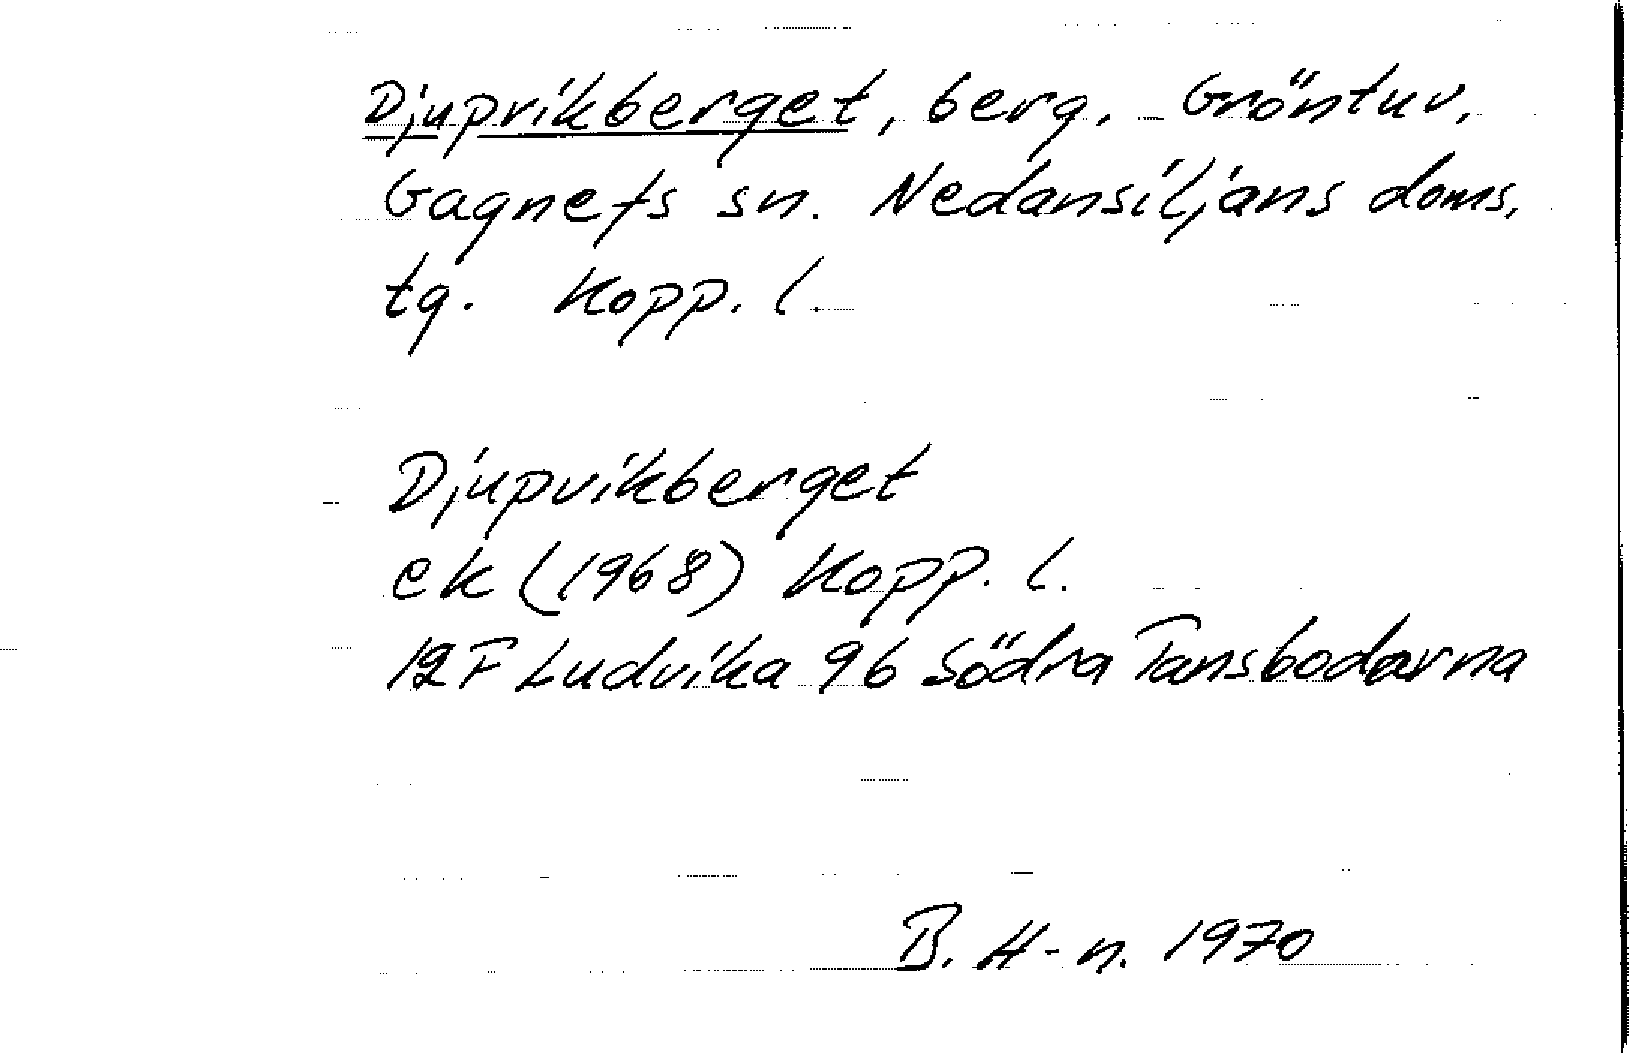 Djupvikberget, berg. Gröntuv,
Gagnefs sn. Nedansiljans doms.
tg. Kopp. l.
Djupvikberget
ek (1968) Kopp. l.
12F Ludvika 9b Södra Tansbodarna
B. H-n. 1970